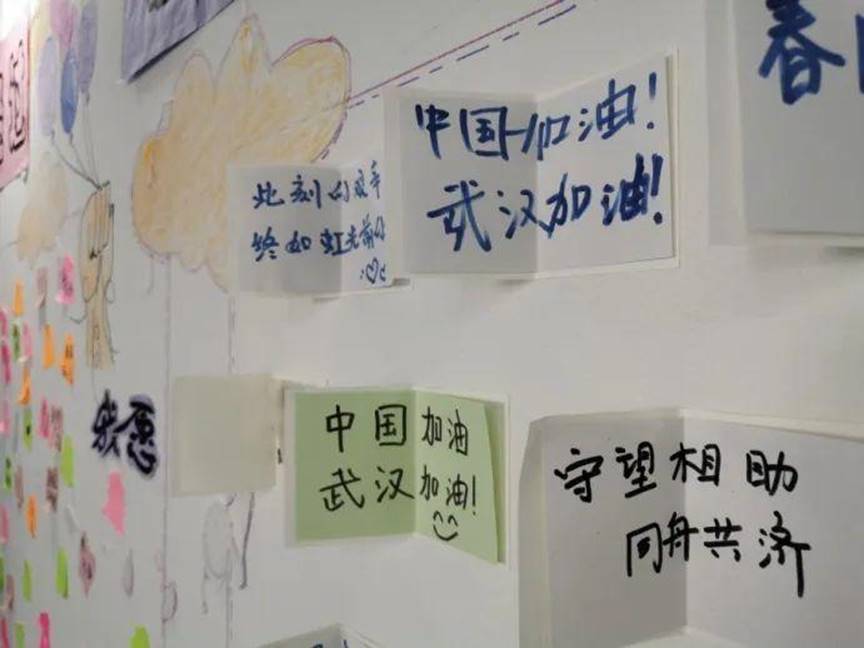 春
中国加油!
武汉加油!
此刻的艰辛
终如虹光前的
中国加油
武汉加油!
我愿
守望相助
同舟共济